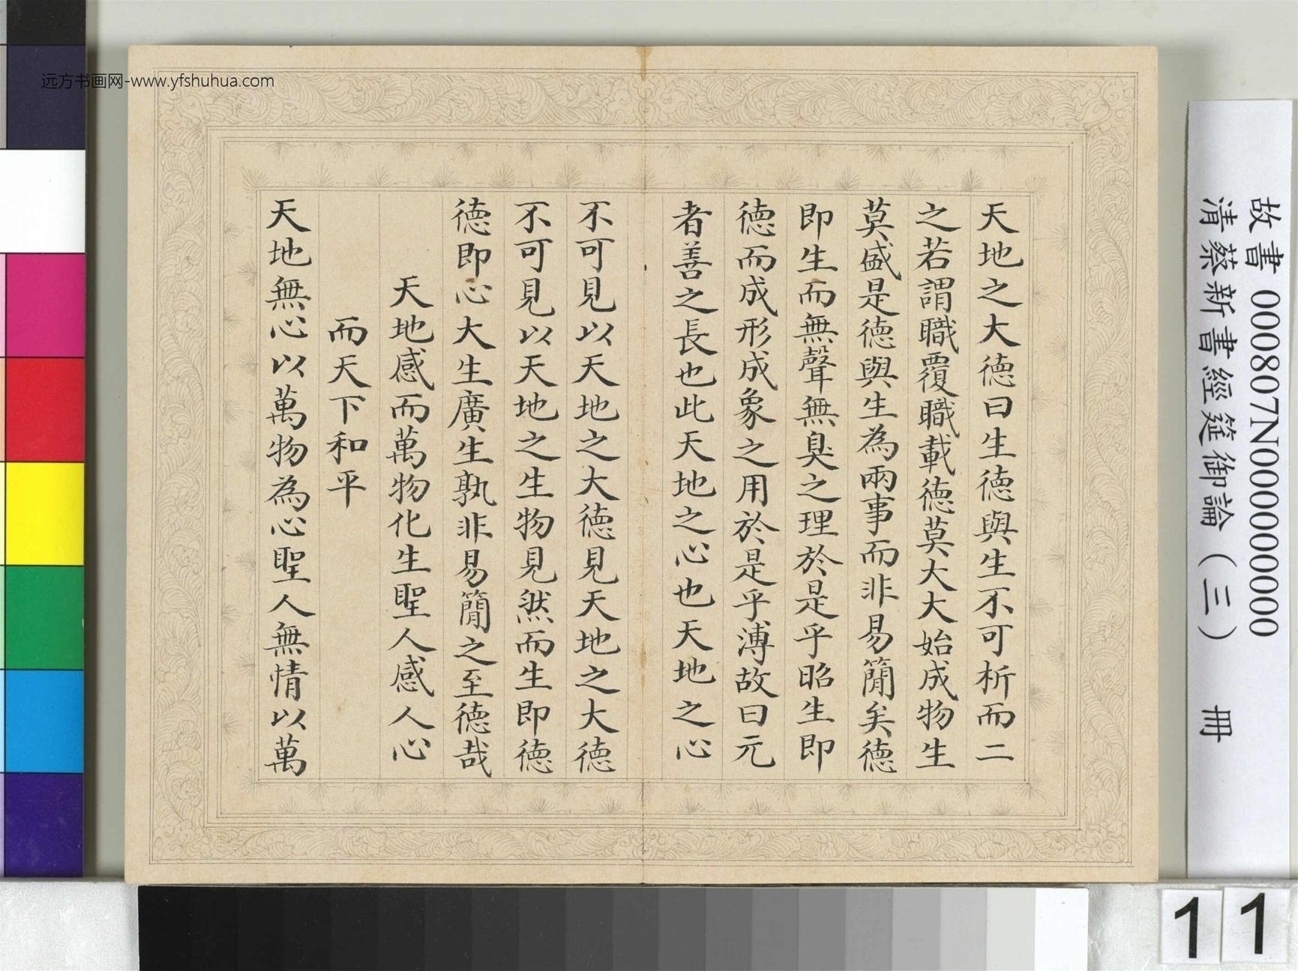 远方书画网-www.yfshuhua.com
天地之大德曰生德與生不可析而二
之若謂職覆職載德莫大大始成物生
莫盛是德與生為兩事而非易簡矣德
即生而無聲無臭之理於是乎昭生即
德而成形成象之用於是乎溥故曰元
者善之長也此天地之心也天地之心
不可見以天地之大德見天地之大德
不可見以天地之生物見然而生即德
德即心大生廣生孰非易簡之至德哉
天地感而萬物化生聖人感人心
而天下和平
天地無心以萬物為心聖人無情以萬
故書 000807N000000000
清蔡新書經筵御論（三） 冊
11